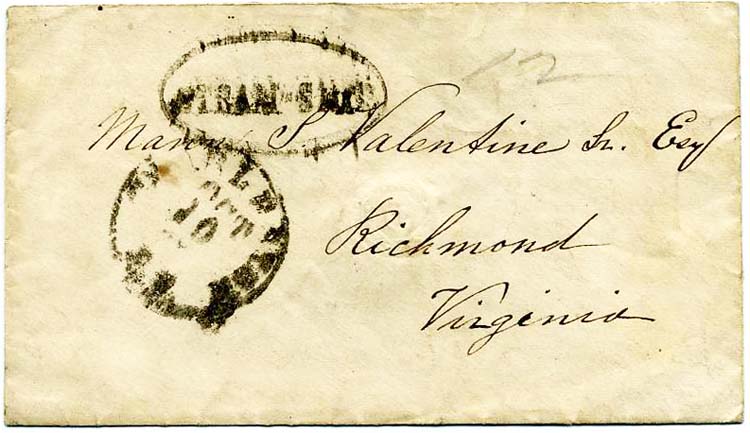 STEAM-SHIP
12
Mann S. Valentine Sr. Esq
OCT
10
Richmond
Virginia